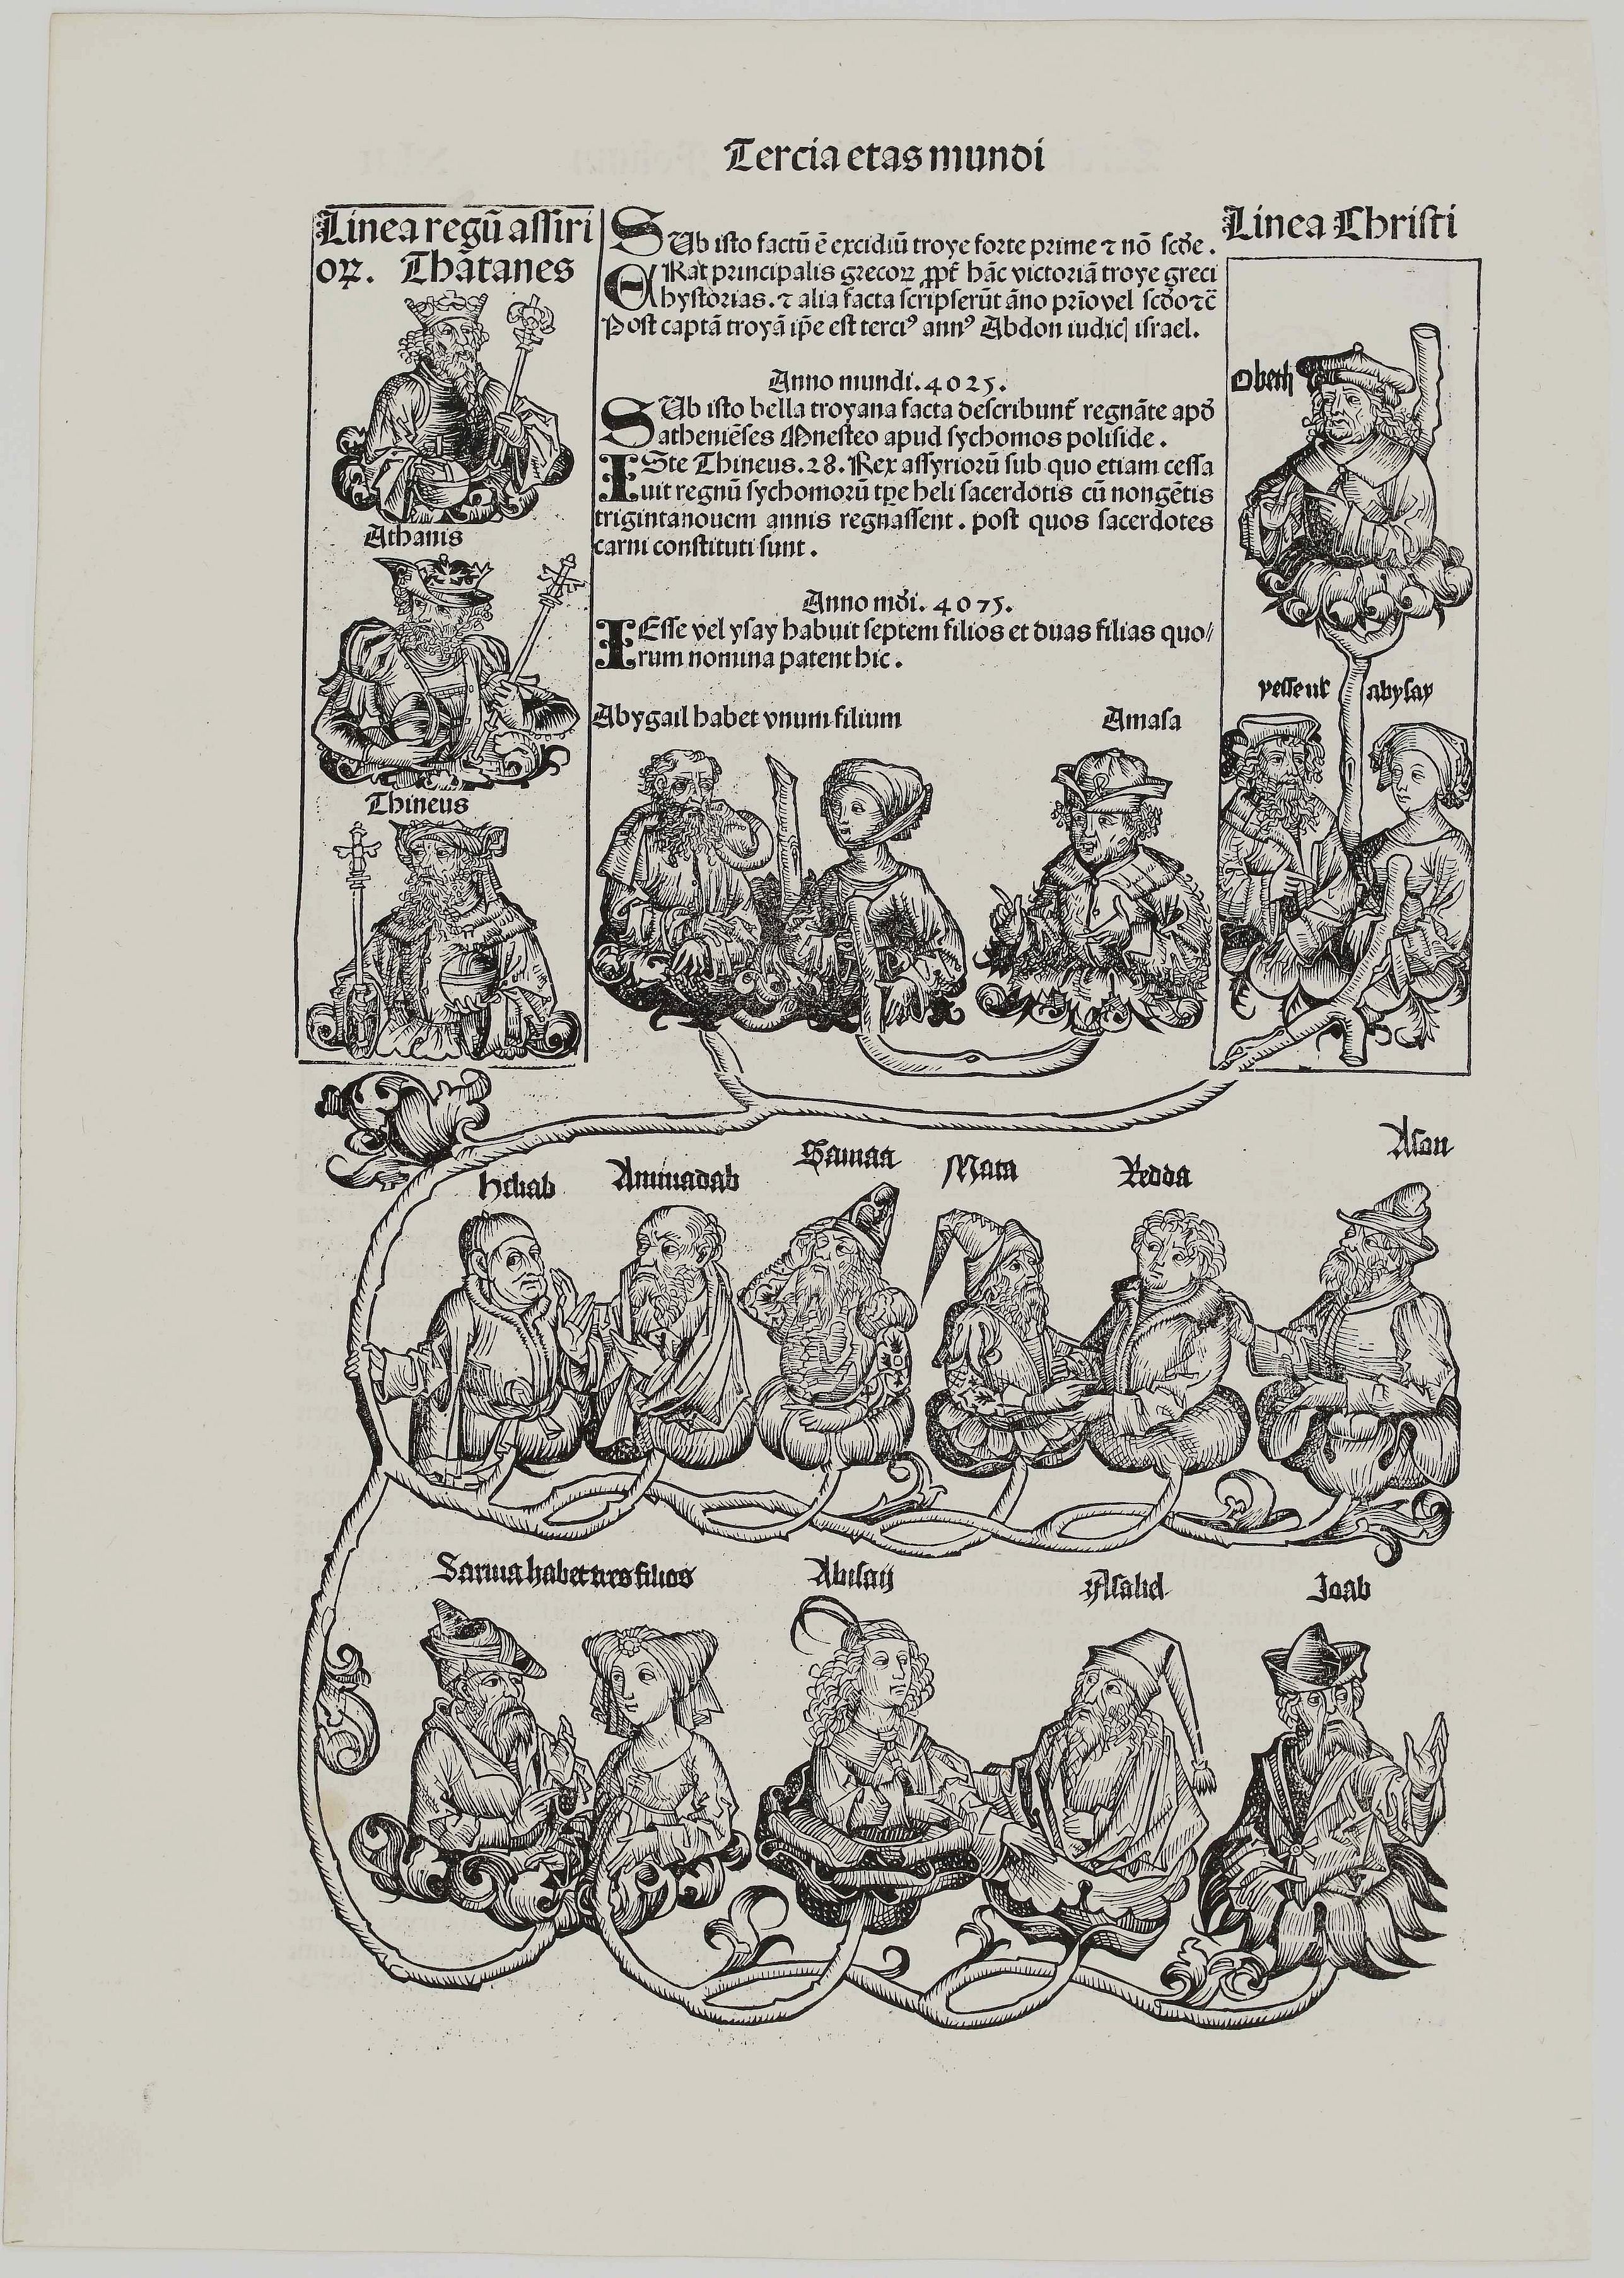 Tercia etas mundi
Linea regũ assiri
oꝝ. Thãtanes
Athanis
Thineus
SUb isto factũ ẽ excidiũ troye forte prime ⁊ nõ scđe.
ERat principalis grecoꝝ ꝓpt̃ hãc victoriã troye greci
hystorias. ⁊ alia facta scripserũt ãno prĩo vel scđo ⁊c̃
Post captã troyã ip̃e est terciꝰ annꝰ Abdon iudicꝭ israel.
Anno mundi. 4025.
SUb isto bella troyana facta describunt̃ regnãte apđ
atheniẽses Mnesteo apud sychomos poliside.
ISte Thineus. 28. Rex assyriorũ sub quo etiam cessa
uit regnũ sychomorũ tp̃e heli sacerdotis cũ nongẽtis
trigintanouem annis regnassent. post quos sacerdotes
carni constituti sunt.
Anno mđi. 4075.
IEsse vel ysay habuit septem filios et duas filias quo/
rum nomina patent hic.
Abygail habet vnum filium
Amasa
Linea Christi
Obeth
abysay
Heliab
Aminadab
Samaa
Mata
Redda
Asan
Saruia habet tres filios
Abisaij
Asahel
Joab